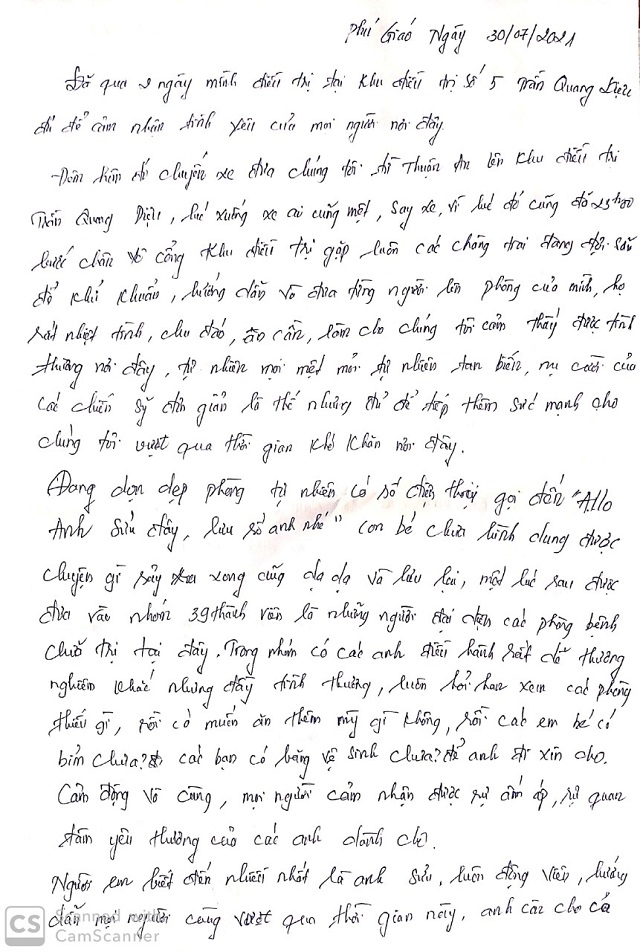 Phú Giáo Ngày 30/07/2021
Đã qua 2 ngày mình điều trị tại khu điều trị số 5 Trần Quang Diệu
đủ để cảm nhận tình yêu của mọi người nơi đây.
Đêm hôm đó chuyến xe đưa chúng tôi từ Thuận An lên khu điều trị
Trần Quang Diệu, lúc xuống xe ai cũng mệt, say xe, vì lúc đó cũng đã 23h00
bước chân vô cổng khu điều trị gặp luôn các chàng trai đang đợi sẵn
để khử khuẩn, hướng dẫn và đưa từng người lên phòng của mình, họ
rất nhiệt tình, chu đáo, ân cần, làm cho chúng tôi cảm thấy được tình
thương nơi đây, tự nhiên mọi mệt mỏi tự nhiên tan biến, nụ cười của
các chiến sỹ đơn giản là thế nhưng đủ để tiếp thêm sức mạnh cho
chúng tôi vượt qua thời gian khó khăn nơi đây.
Đang dọn dẹp phòng tự nhiên có số điện thoại gọi đến "Allo
Anh Sửu đây, lưu số anh nhé" con bé chưa hình dung được
chuyện gì sảy ra xong cũng dạ dạ và lưu lại, một lúc sau được
đưa vào nhóm 39 thành viên là những người đại diện các phòng bệnh
chữa trị tại đây. Trong nhóm có các anh điều hành rất dễ thương
nghiêm khắc nhưng đầy tình thương, luôn hỏi han xem các phòng
thiếu gì, rồi có muốn ăn thêm mỳ gì không, rồi các em bé có
bỉm chưa? các bạn có băng vệ sinh chưa? để anh đi xin cho.
Cảm động vô cùng, mọi người cảm nhận được sự ấm áp, sự quan
tâm yêu thương của các anh dành cho.
Người em biết đến nhiều nhất là anh Sửu, luôn động viên, hướng
dẫn mọi người cùng vượt qua thời gian này, anh căn cho cả
CS Scanned with
CamScanner